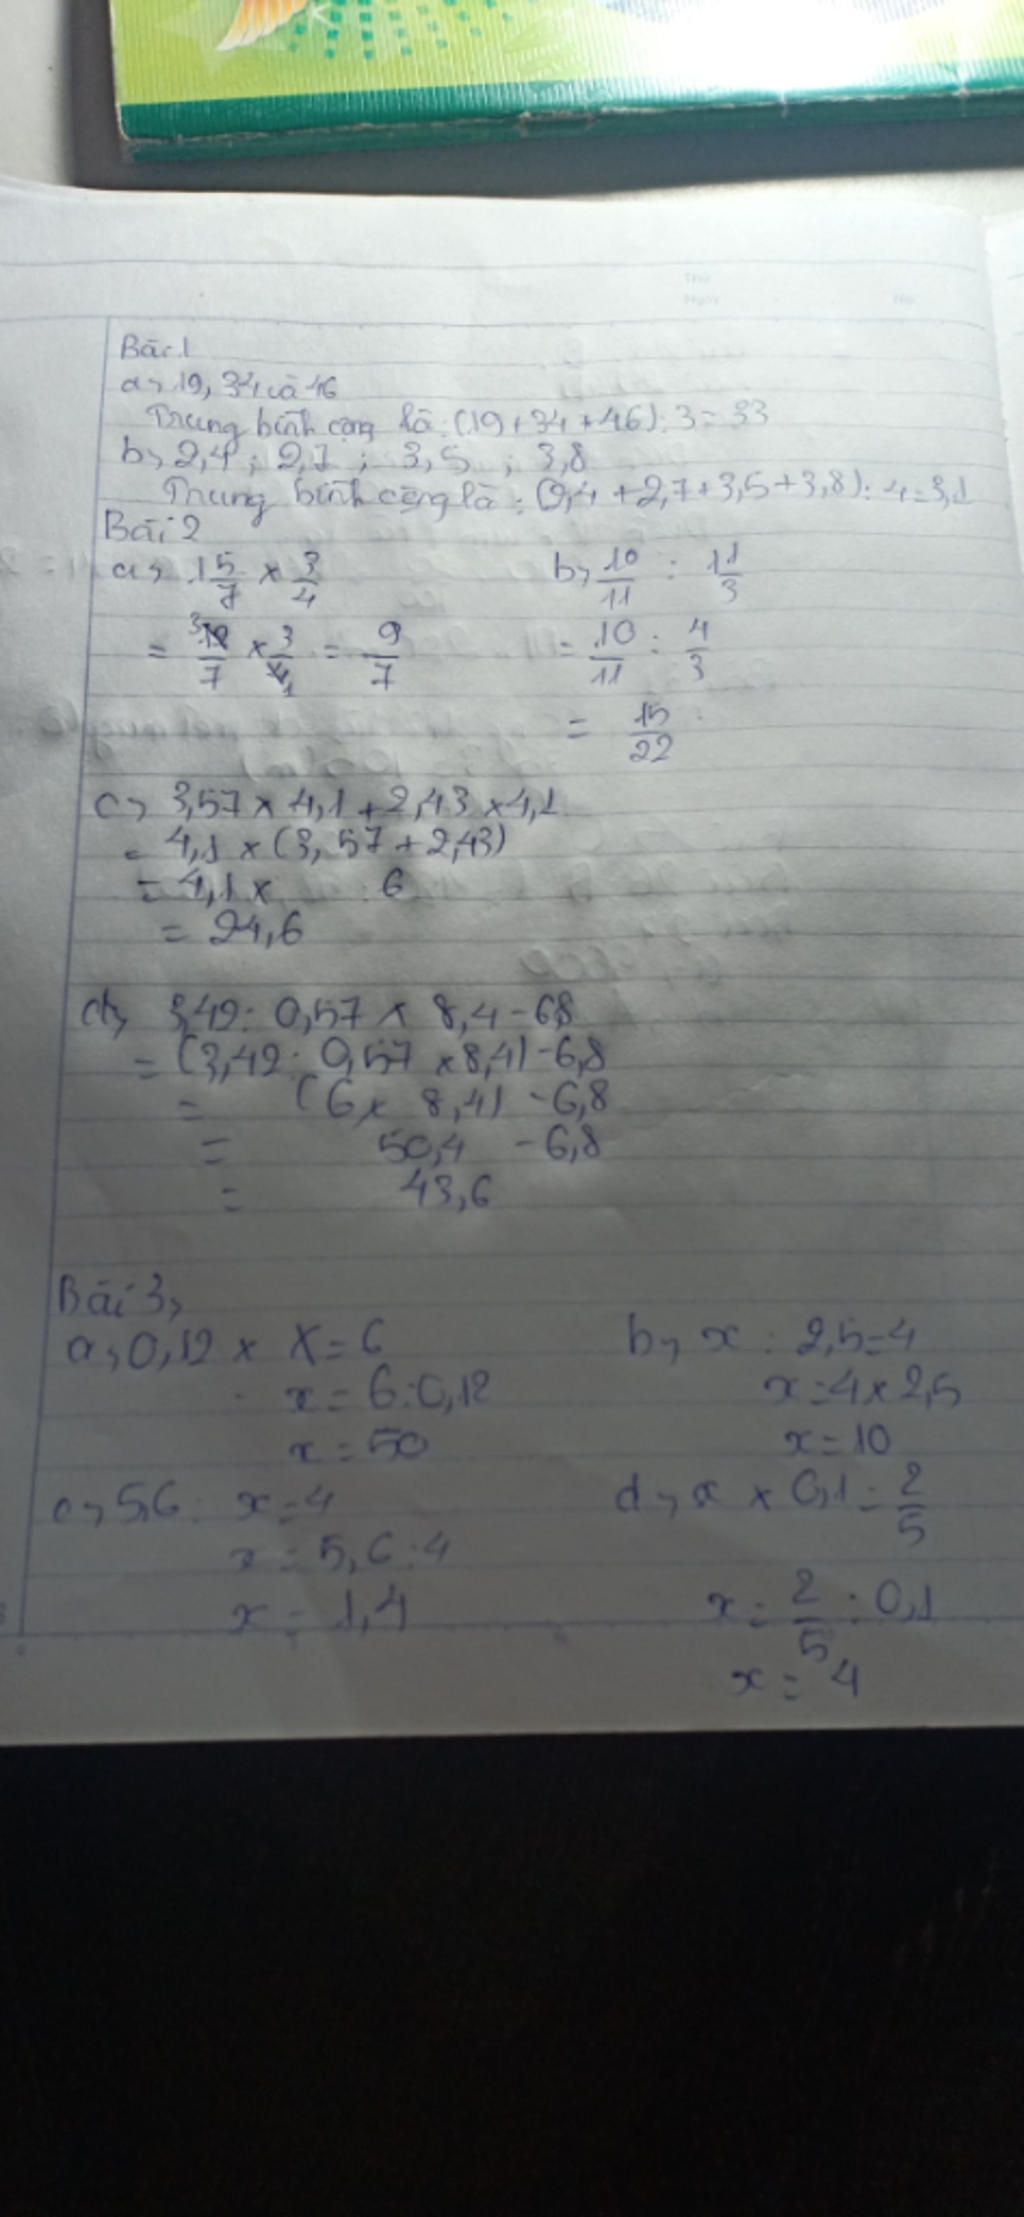 Thứ
Ngày
No.
Bài 1
a, 19, 34 và 46
Trung bình cộng là: (19+34+46):3=33
b, 2,4; 2,7; 3,5; 3,8
Trung bình cộng là: (2,4+2,7+3,5+3,8):4=3,1
Bài 2
a, 1 5/7 × 3/4 b, 10/11 : 1 1/3
= 12/7 × 3/4 = 9/7 = 10/11 : 4/3
= 15/22
c, 3,57 × 4,1 + 2,43 × 4,1
= 4,1 × (3,57 + 2,43)
= 4,1 × 6
= 24,6
d, 3,42 : 0,57 × 8,4 - 6,8
= (3,42 : 0,57 × 8,4) - 6,8
= (6 × 8,4) - 6,8
= 50,4 - 6,8
= 43,6
Bài 3,
a, 0,12 × X = 6 b, x : 2,5 = 4
x = 6 : 0,12 x = 4 × 2,5
x = 50 x = 10
c, 5,6 : x = 4 d, x × 0,1 = 2/5
x = 5,6 : 4 x = 2/5 : 0,1
x = 1,4
x = 4